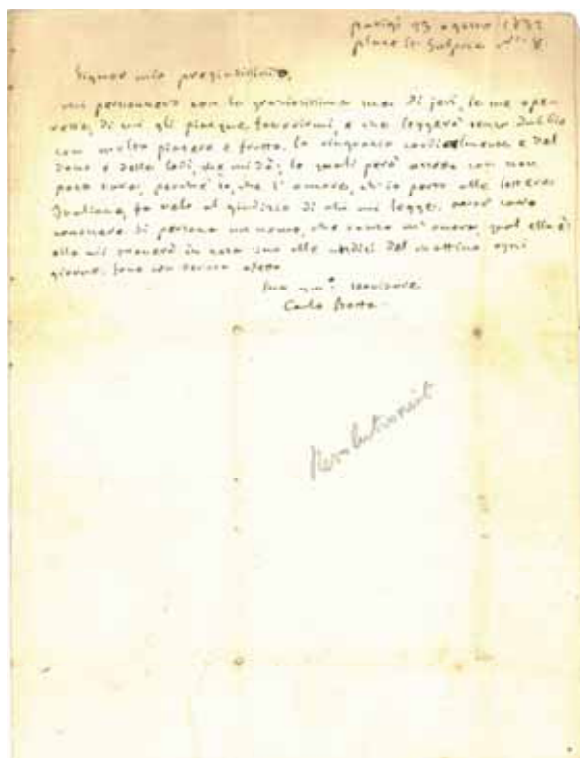 parigi 23 agosto 1832
place St. Sulpice n.° 8.
Signor mio pregiatissimo,
mi pervennero con la graziosissima sua di jeri, le sue ope-
rette, di cui gli piacque favorirmi, e che leggerò senza dubbio
con molto piacere e frutto. La ringrazio cordialmente e del
dono e delle lodi, che mi dà; le quali però avrò con non
poco care, perchè so, che l'amore, ch'io porto alle lettere
Italiane, fa velo al giudizio di chi mi legge. avrò caro
conoscere di persona un uomo, che tanto m'onora, qual ella è:
ella mi troverà in casa sua alle undici del mattino ogni
giorno. Sono con vera stima
Suo servitore
Carlo Botta
Revolutionist